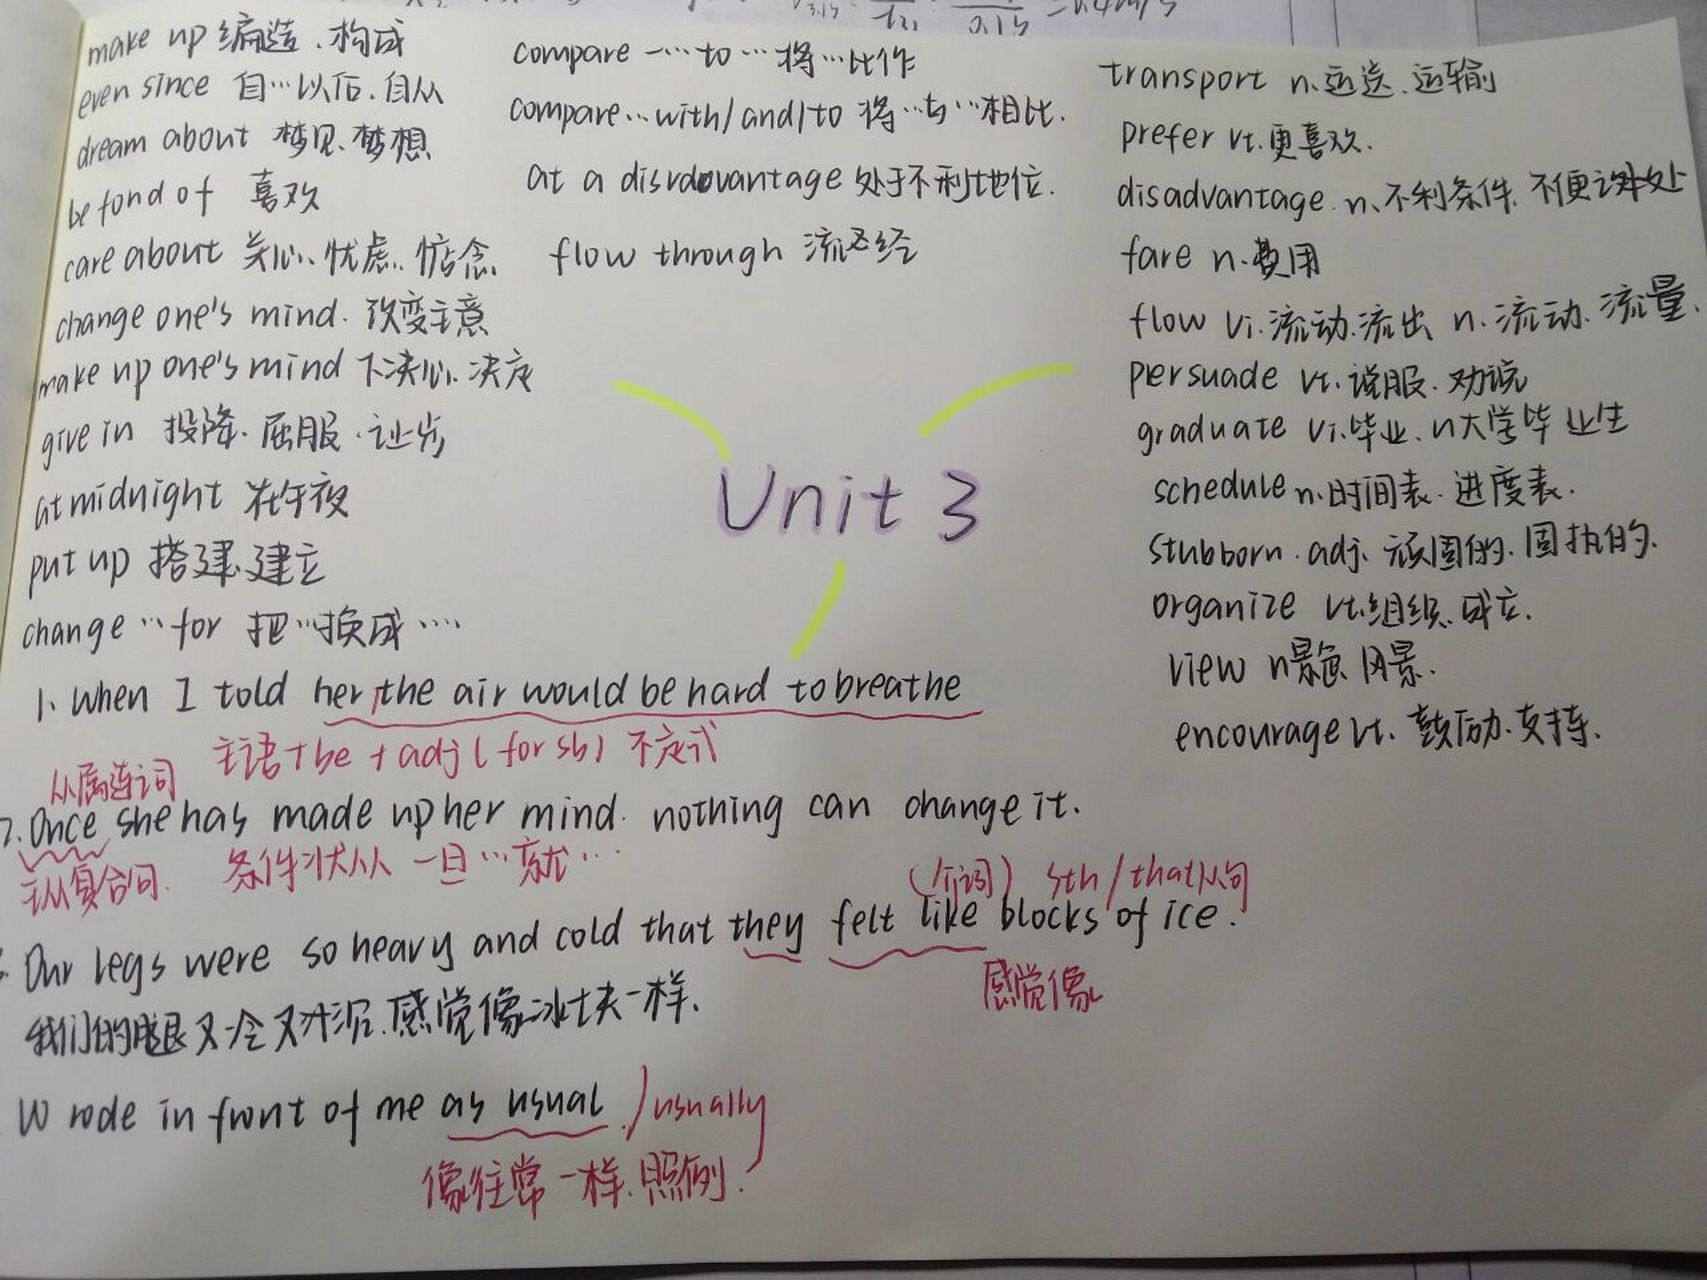 make up 编造、构成
even since 自…以后、自从
dream about 梦见、梦想
be fond of 喜欢
care about 关心、忧虑、惦念
change one's mind. 改变主意
make up one's mind 下决心、决定
give in 投降、屈服、让步
at midnight 在午夜
put up 搭建、建立
change …for 把…换成…
compare …to …将…比作
compare…with/and/to 将…与…相比.
at a disrdovantage 处于不利地位.
flow through 流经
transport n.运送、运输
prefer vt.更喜欢.
disadvantage n.不利条件、不便之处
fare n.费用
flow vi.流动、流出 n.流动、流量.
persuade vt.说服、劝说
graduate vi.毕业、n大学毕业生
schedule n.时间表、进度表.
stubborn.adj.顽固的、固执的.
organize vt.组织、成立.
view n景色、风景.
encourage vt.鼓励、支持.
Unit 3
1. When I told her, the air would be hard to breathe
主语+be+adj(for sb)不定式
从属连词
2. Once she has made up her mind. nothing can change it.
主从复合句. 条件状从 一旦…就…
(介词) sth/that从句
Our legs were so heavy and cold that they felt like blocks of ice.
感觉像
我们的腿又冷又沉、感觉像冰块一样.
W rode in front of me as usual./usually
像往常一样、照例.